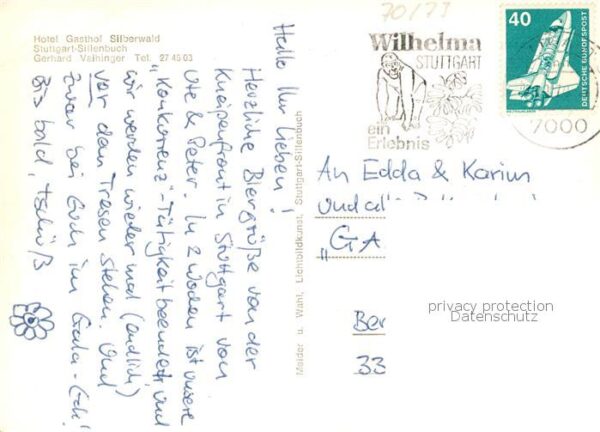 Hotel Gasthof Silberwald
Stuttgart-Sillenbuch
Gerhard Vaihinger Tel. 27 46 03
70/77
Wilhelma
STUTTGART
ein
Erlebnis
40
DEUTSCHE BUNDESPOST
7000
Hallo Ihr Lieben!
Herzliche Biergrüße von der
Kneipenfront in Stuttgart von
Ute & Peter. In 2 Wochen ist unsere
"Konkurrenz"-Tätigkeit beendet, und
wir werden wieder mal (endlich)
vor dem Tresen stehen. Und
zwar bei Euch im Gala-Eck!
Bis bald, tschüß
Molder u. Wahl, Lichtbildkunst, Stuttgart-Sillenbuch
An Edda & Karin
und
"GA
Ber
33
privacy protection
Datenschutz